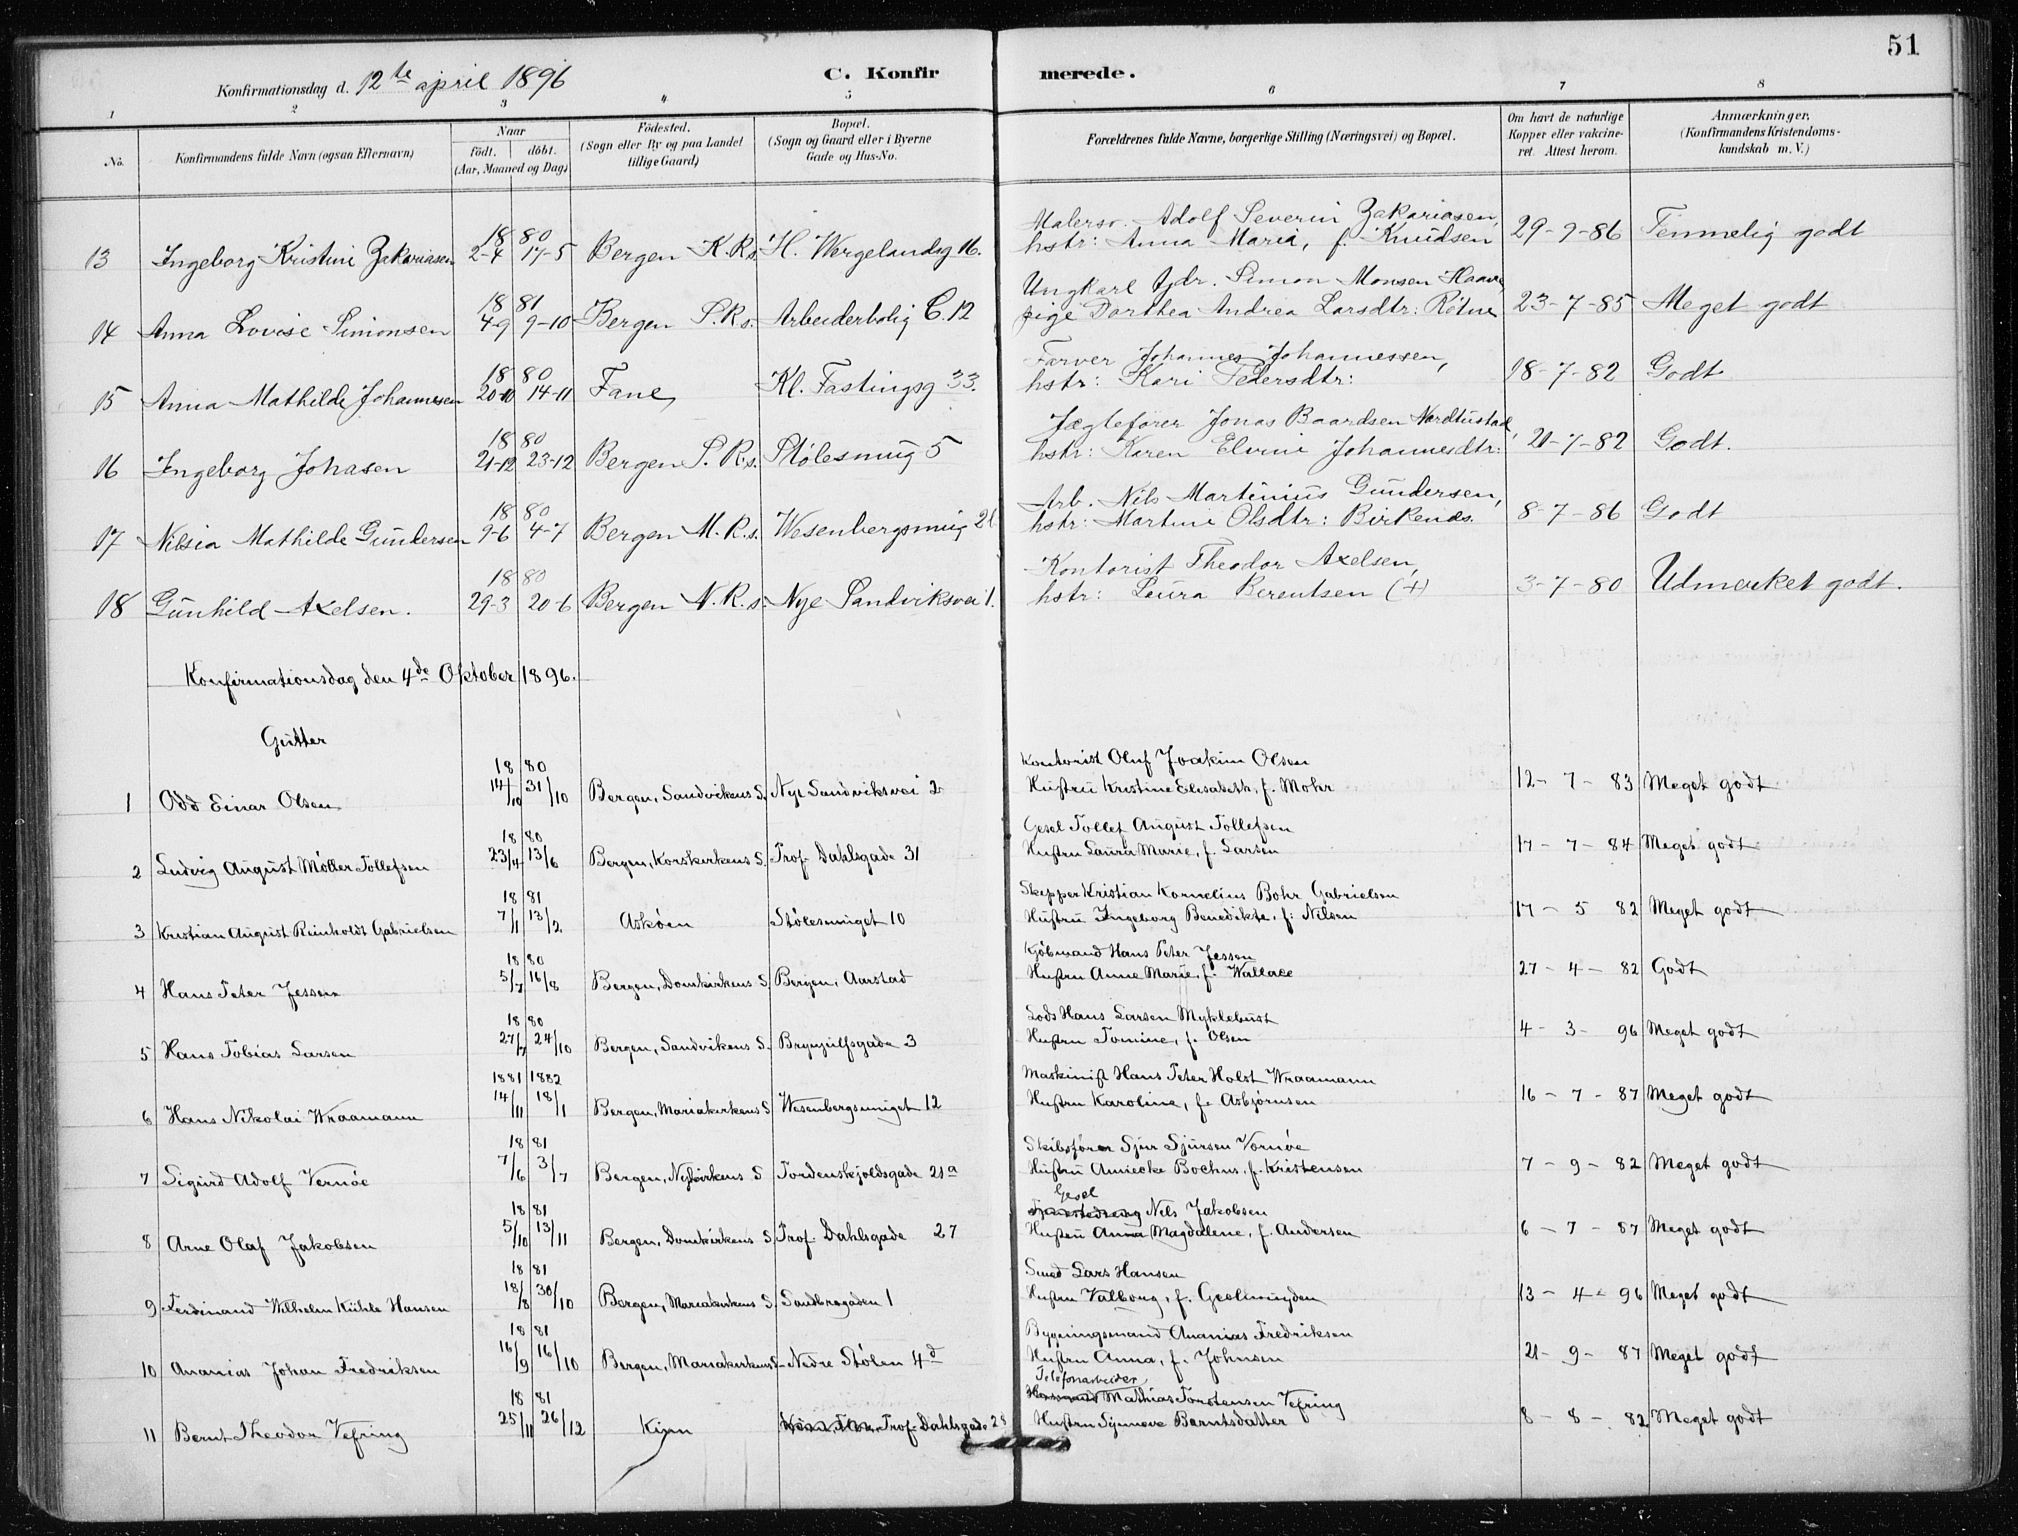 51
Konfirmationsdag d. 12te april 1896
C. Konfirmerede.
1 2 3 4 5 6 7 8
No. Konfirmandens fulde Navn (ogsaa Efternavn) Naar født. döbt. (Aar, Maaned og Dag) Födested. (Sogn eller By og paa Landet tillige Gaard) Bopæl. (Sogn og Gaard eller i Byerne Gade og Hus-No. Forældrenes fulde Navne, borgerlige Stilling (Næringsvei) og Bopæl. Om havt de naturlige Kopper eller vakcineret. Attest herom. Anmærkninger. (Konfirmandens Kristendomskundskab m. V.)
Malersv. Adolf Severin Zakariasen,
13 Ingeborg Kristine Zakariasen 1880 2-4 17-5 Bergen K.R.s. H. Wergelandsg 16. hstr: Anna Maria, f. Knudsen 29-9-86 Temmelig godt
Ungkarl Simon Monsen
14 Anna Lovise Simonsen 1881 4-9 9-10 Bergen S.R.s. Arbeiderbolig C.12 pige Dorthea Andrea Larsdtr: 23-7-85 Meget godt
Farver Johannes Johannessen,
15 Anna Mathilde Johannesen 1880 20-10 14-11 Fane Kl. Fastingsg 33. hstr: Kari Pedersdtr: 18-7-82 Godt
Jægtefører Jonas Baardsen
16 Ingeborg Johasen 1880 21-12 23-12 Bergen S.R.s. Stølesmug 5 hstr: Karen Elvine Johannesdtr: 21-7-82 Godt.
Arb. Nils Martinius Gundersen,
17 Nilsia Mathilde Gundersen 1880 9-6 4-7 Bergen M.R.s. Wesenbergsmug hstr: Martine Olsdtr: 8-7-86 Godt
Kontorist Theodor Axelsen,
18 Gunhild Axelsen. 1880 29-3 20-6 Bergen N.R.s. Nye Sandviksvei 1. hstr: Laura Berentsen (+) 3-7-80 Udmærket godt.
Konfirmationsdag den 4de Oktober 1896.
Gutter
Kontorist Oluf Joakim Olsen
1 Odd Einar Olsen 1880 14/10 31/10 Bergen, Sandvikens S. Nye Sandviksvei 2 Hustru Kristine Elisabeth, f. Mohr 12-7-83 Meget godt
Gesel Tollef August Tollefsen
2 Ludvig August Möller Tollefsen 1880 23/4 13/6 Bergen, Korskirkens S. Prof. Dahlsgade 31 Hustru Laura Marie, f. Larsen 17-7-84 Meget godt
Skipper Kristian Kornelius Bohr Gabrielsen
3 Kristian August Reinholdt Gabrielsen 1881 7/1 13/2 Askøen Stølesmuget 10 Hustru Ingeborg Benedikte, f: Nilsen 17-5 82 Meget godt
Kjöbmand Hans Peter Jessen
4 Hans Peter Jessen 1880 5/7 16/8 Bergen, Domkirkens S. Bergen, Aarstad Hustru Anne Marie, f. Wallace 27-4-82 Godt
Lods Hans Larsen Myklebust
5 Hans Tobias Larsen 1880 27/7 24/10 Bergen, Sandvikens S. Brynjulfsgade 3 Hustru Tomine, f. Olsen 4-3-96 Meget godt
Maskinist Hans Peter Holst Wraamann
6 Hans Nikolai Wraamann 1881 1882 14/11 18/1 Bergen, Mariakirkens S Wesenbergsmuget 12 Hustru Karoline, f. Asbjørnsen 16-7-87 Meget godt
Skibsfører Sjur Sjursen Vernøe
7 Sigurd Adolf Vernøe 1881 7/6 3/7 Bergen, Nykirkens S Tordenskjoldsgade 21a Hustru Amiecke Bochus, f. Kristensen 7-9-82 Meget godt
Gesel
Nils Jakobsen
8 Arne Olaf Jakobsen 1881 5/10 13/11 Bergen, Domkirkens S. Prof. Dahlsgade 27 Hustru Anna Magdalene, f. Andersen 6-7-87 Meget godt
Smed Lars Hansen
9 Ferdinand Wilhelm Kühle Hansen 1881 18/8 30/10 Bergen, Mariakirkens S. Sandbrogaden 1 Hustru Valborg, f. Geelmuyden 13-4-96 Meget godt
Bygningsmand Ananias Fredriksen
10 Ananias Johan Fredriksen 1881 16/9 16/10 Bergen, Mariakirkens S. Nedre Stølen 4d Hustru Anna, f. Johnsen 21-9-87 Meget godt
Telefonarbeider
Mathias Torstensen Vefring
11 Bernt Theodor Vefring 1881 25/11 26/12 Kinn Prof. Dahlsgade 28 Hustru Synneve Berntsdatter 8-8-82 Meget godt